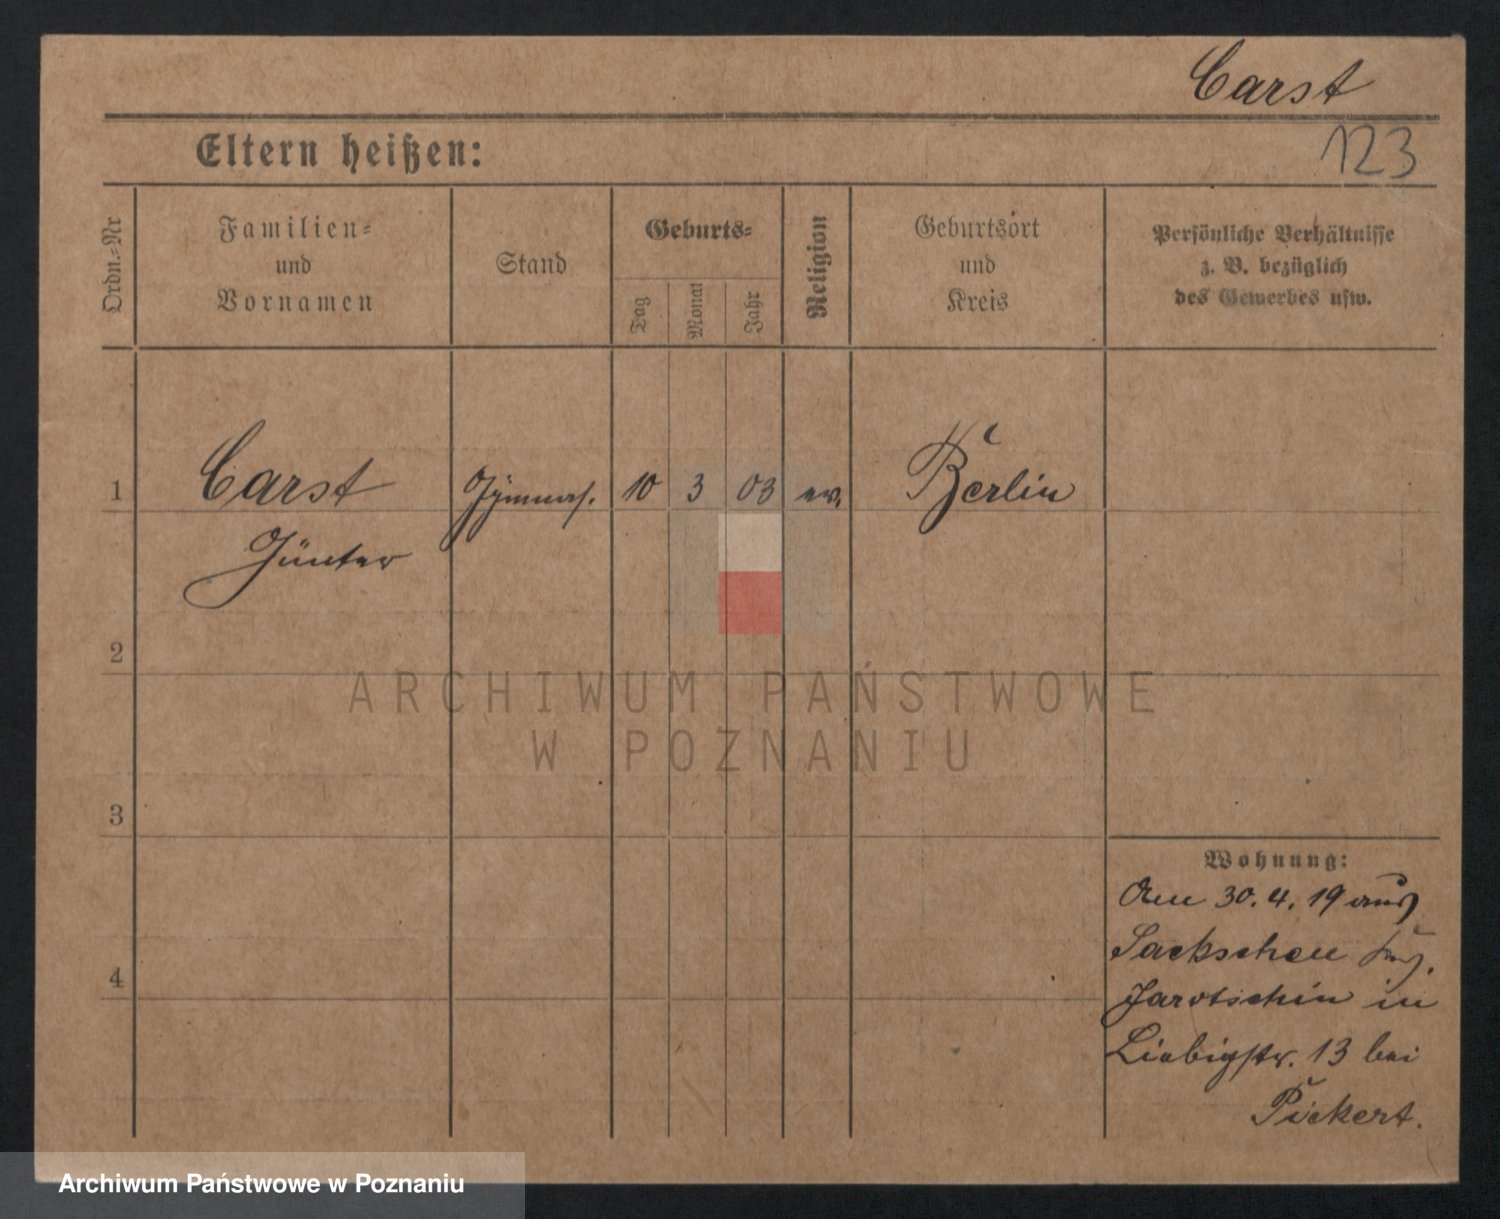 Carst
123
Eltern heißen:
Ordn.-Nr
Familien-
und
Vornamen
Stand
Geburts-
Tag
Monat
Jahr
Religion
Geburtsort
und
Kreis
Persönliche Verhältnisse
z. B. bezüglich
des Gewerbes usw.
1
Carst
Günter
Gymnas.
10
3
03
ev.
Berlin
2
ARCHIWUM PAŃSTWOWE
W POZNANIU
3
4
Wohnung:
Am 30. 4. 19 aus
Sackschen
Jarotschin in
Liebigstr. 13 bei
Pickert.
Archiwum Państwowe w Poznaniu